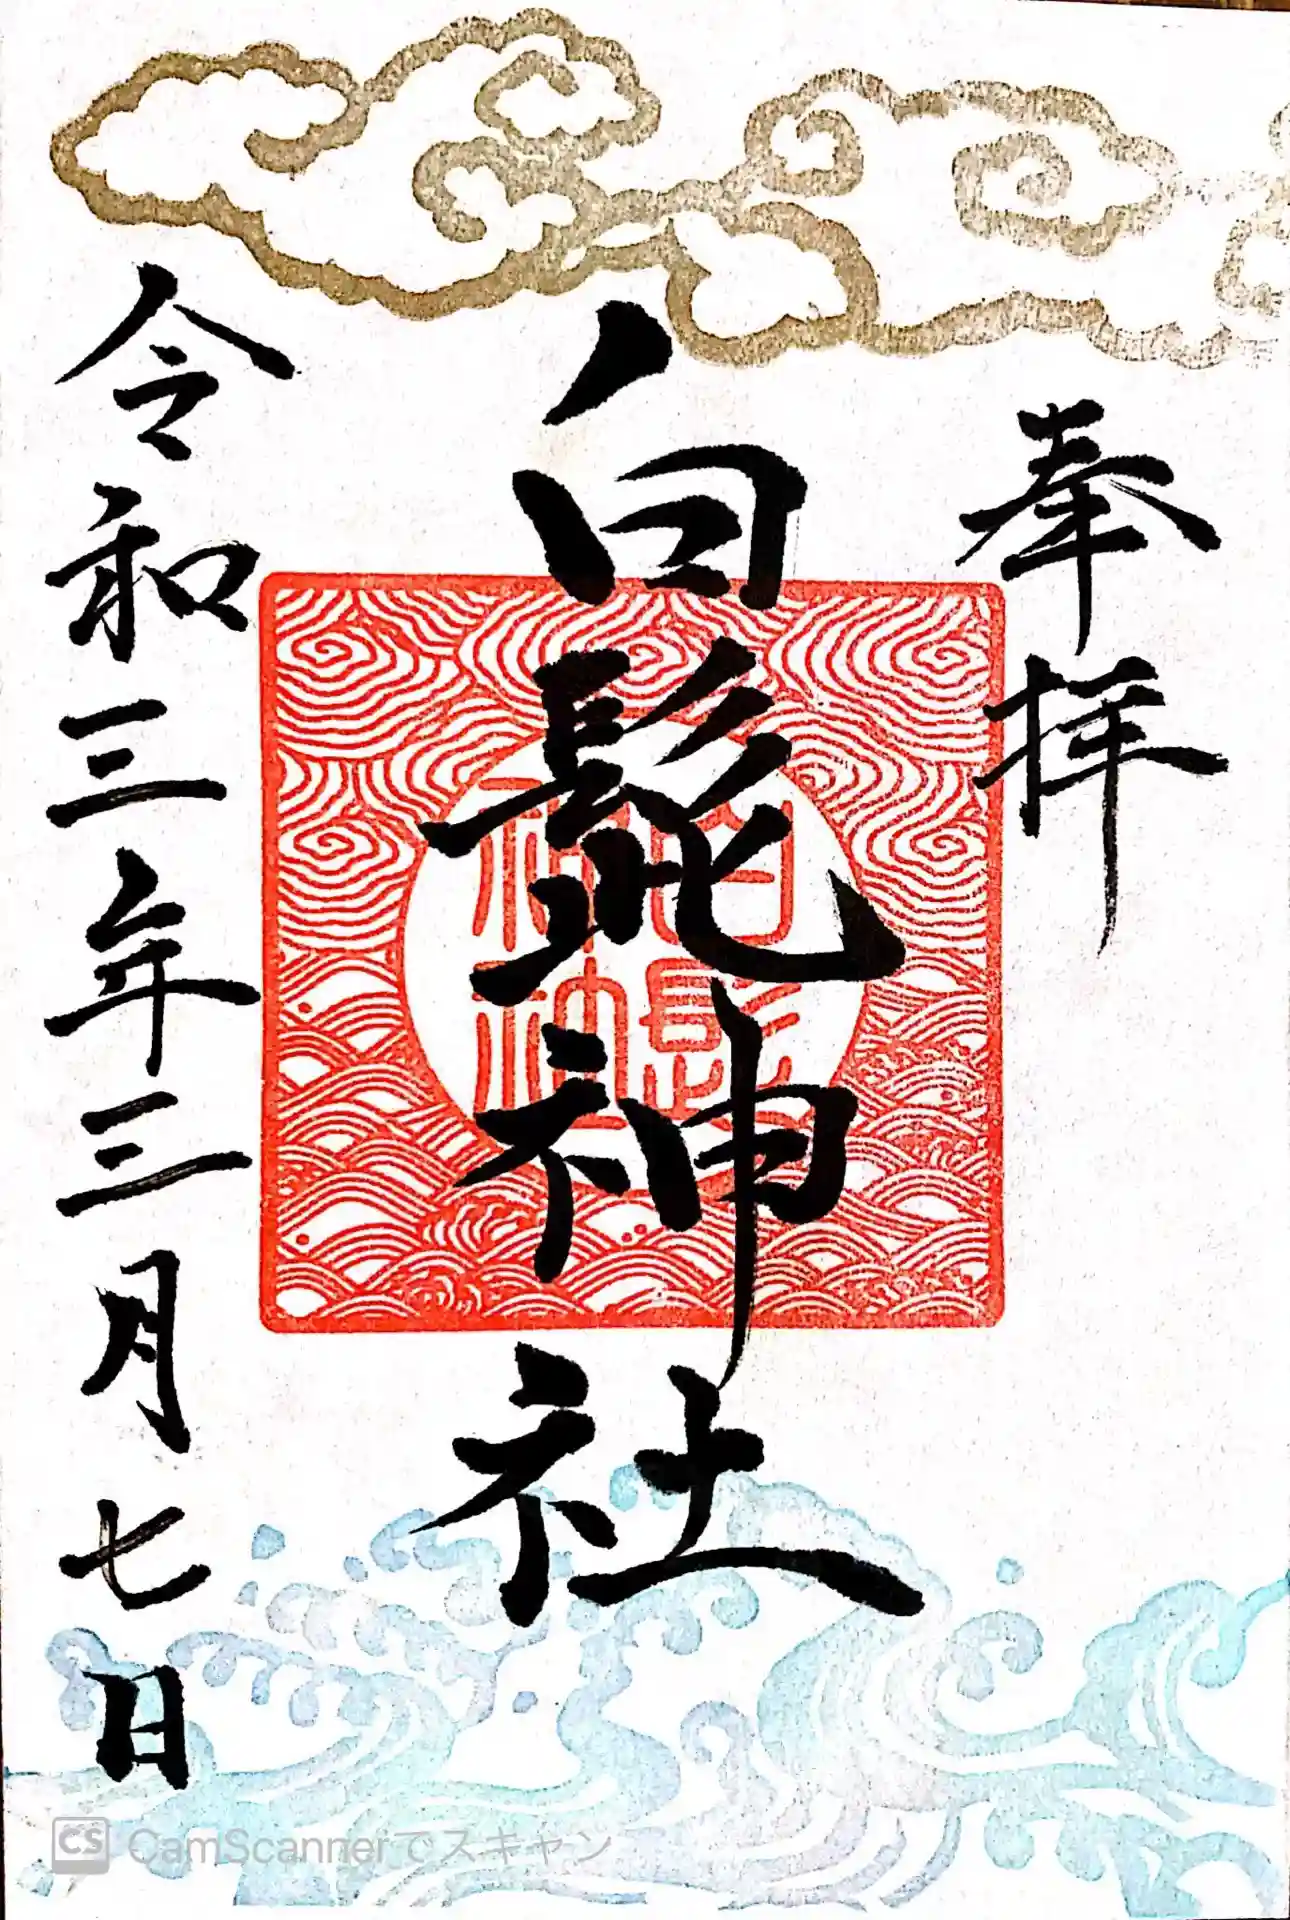 奉拝
白髭神社
令和三年三月七日
白髭神社
CS CamScannerでスキャン